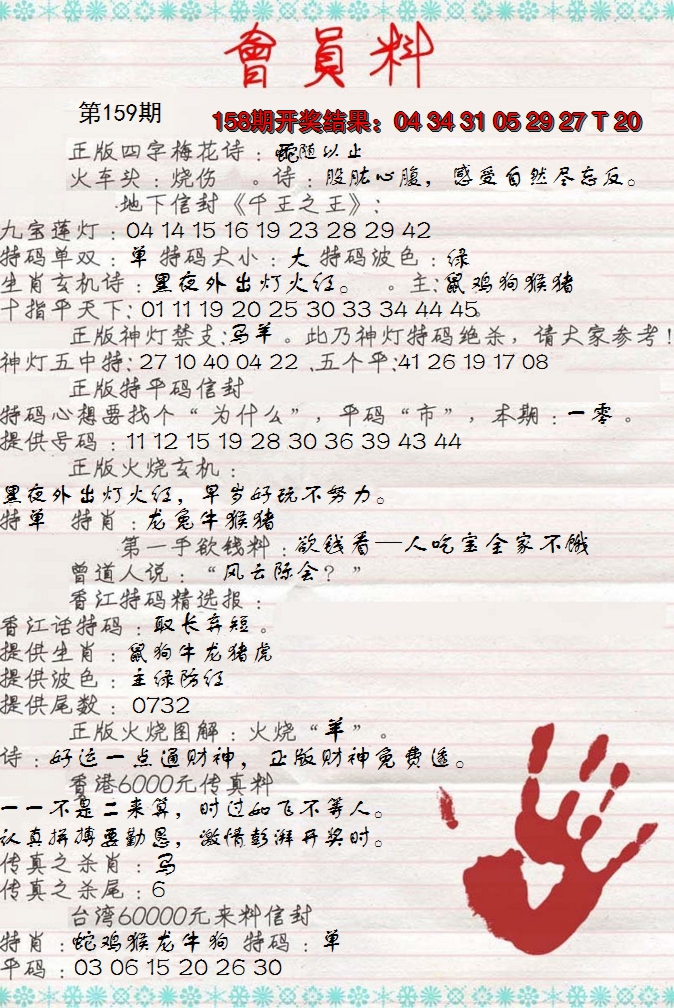 會員料
第159期
158期开奖结果：04 34 31 05 29 27 T 20
正版四字梅花诗：蛇随以止
火车头：烧伤 。诗：股肱心腹，感受自然尽忘反。
地下信封《千王之王》：
九宝莲灯：04 14 15 16 19 23 28 29 42
特码单双：单 特码大小：大 特码波色：绿
生肖玄机诗：黑夜外出灯火红。 。主:鼠鸡狗猴猪
十指平天下: 01 11 19 20 25 30 33 34 44 45。
正版神灯禁支:马羊。此乃神灯特码绝杀，请大家参考!
神灯五中特:27 10 40 04 22 .五个平:41 26 19 17 08
正版特平码信封
特码心想要找个“为什么”，平码“市”，本期：一零。
提供号码：11 12 15 19 28 30 36 39 43 44
正版火烧玄机：
黑夜外出灯火红，早岁好玩不努力。
特单 特肖：龙兔牛猴猪
第一手欲钱料：欲钱看一人吃宝全家不饿
曾道人说：“风云际会？”
香江特码精选报：
香江话特码：取长弃短。
提供生肖：鼠狗牛龙猪虎
提供波色：主绿防红
提供尾数：0732
正版火烧图解：火烧“羊”。
诗：好运一点通财神，正版财神免费送。
香港6000元传真料
一一不是二来算，时过如飞不等人。
认真拼搏要勤恳，激情彭湃开奖时。
传真之杀肖：马
传真之杀尾：6
台湾60000元来料信封
特肖：蛇鸡猴龙牛狗 特码：单
平码：03 06 15 20 26 30